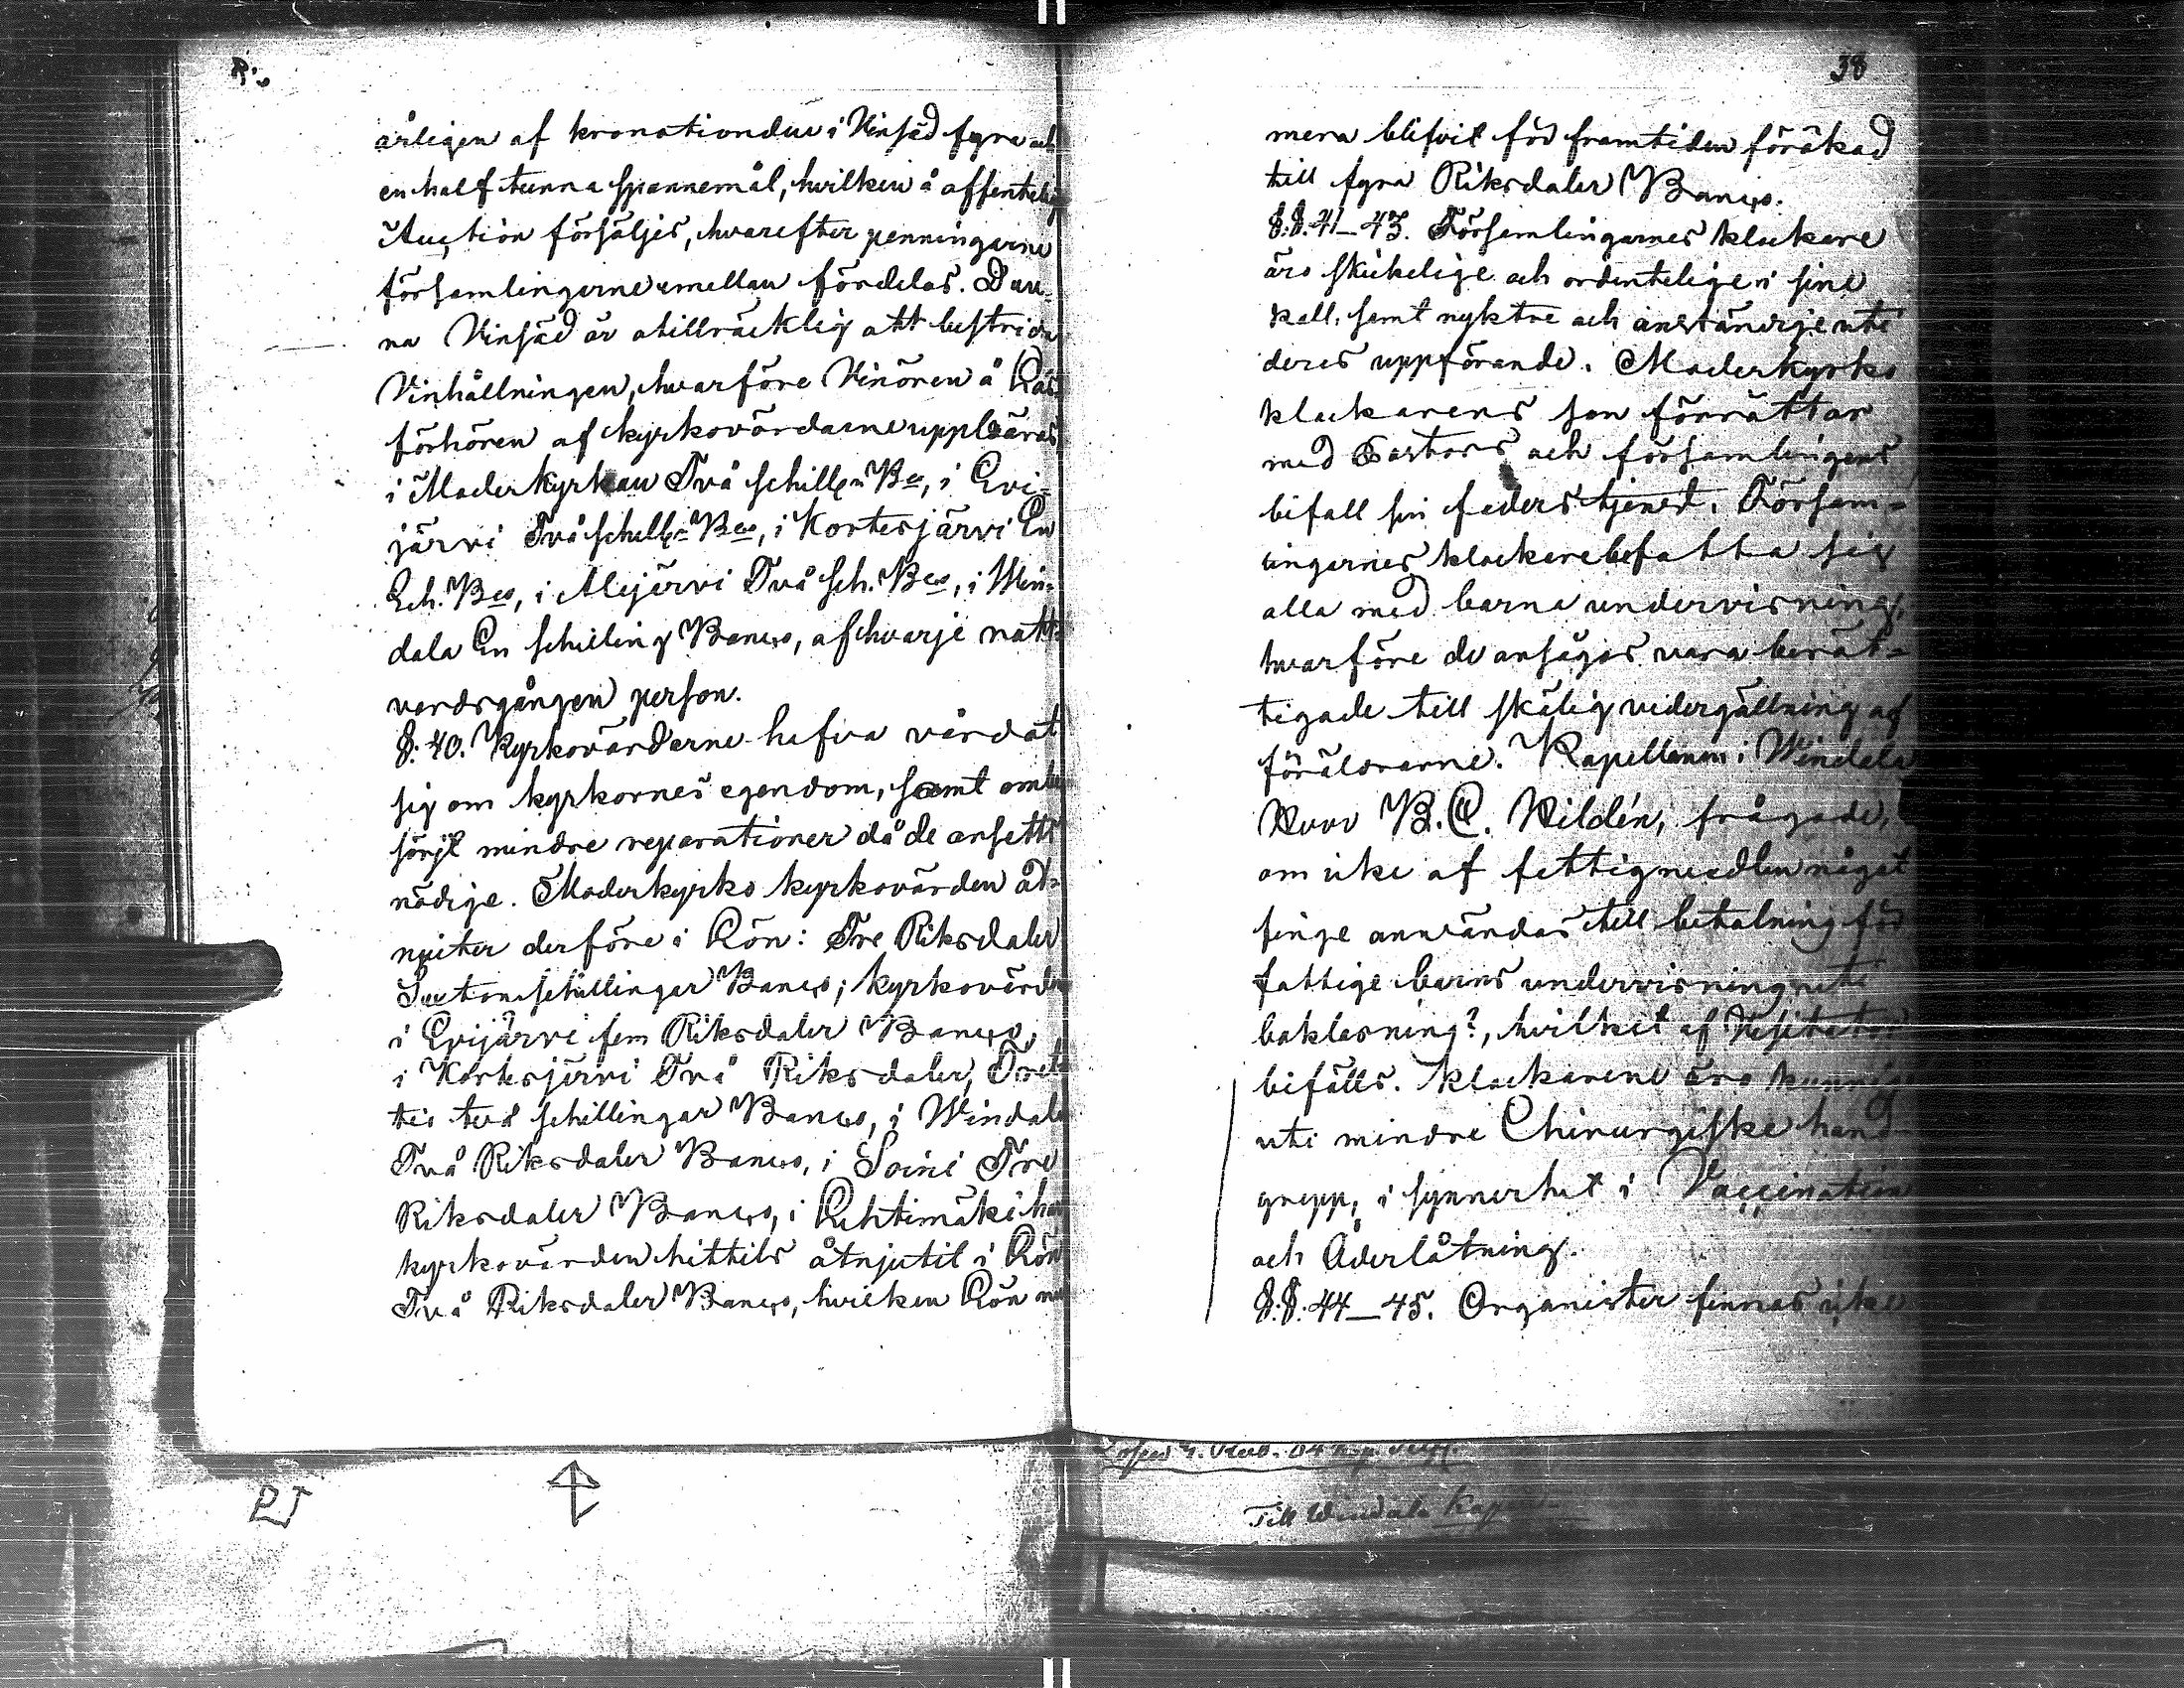 årligen af kronotionden i Vinsäd fyra och
en half tunna spannemål, hvilken å offentelig
Auction försäljes, hvarefter penningarne
församlingarne emellan fördelas. Den¬
na Vinsäd är otillräcklig att bestrida
Vinhållningen, hvarföre Vinören å Läs¬
förhören af kyrkovärdarne uppbäras
i Moderkyrkan Två schill:r Bco, i Evi¬
järvi Två schill:r Bco, i Kortesjärvi En
Sch. Bco, i Alajärvi Två Sch. Bco, i Win¬
dala En schilling Banco, af hvarje natt¬
vardsgången person.
§. 40. Kyrkovärdarne hafva vårdat
sig om kyrkornes egendom, samt ombe
sörjt mindre reparationer då de ansetts
nödige. Moderkyrko kyrkovärden åt¬
njuter derföre i Lön: Tre Riksdaler
Sexton schillingar Banco; kyrkovärden
i Evijärvi fem Riksdaler Banco,
i Kortesjärvi Två Riksdaler, Tret¬
tio två schillingar Banco, i Windala
Två Riksdaler Banco, i Soini Tre
Riksdaler Banco, i Lehtimäki har
kyrkovärden hittils åtnjutit i Lön
Två Riksdaler Banco, hvilken Lön nu
38
mera blifvit för framtiden förökad
till fyra Riksdaler Banco.
§.§. 41–43. Församlingarnes klockare
äro skickelige och ordentelige i sine
kall, samt nyktre och anständige uti
deras uppförande. Moderkyrko
klockarens son förrättar
med Pastors och församlingens
bifall sin faders tjenst. Försam¬
lingarnes klockare befatta sig
alla med barna undervisning,
hvarföre de ansågos vara berät¬
tigade till skälig vedergällning af
föräldrarne. Kapellanen i Windala
B. C. Wildén, frågade,
om icke af fattigmedlen något
finge användas till betalning för
fattige barns undervisning uti
bokläsning?, hvilket af Visitator
bifälls. Klockarene äro kunnige
uti mindre Chirurgiske hand
grepp, i synnerhet i Vaccination
och Åderlåtning.
§.§. 44–45. Organister finnas icke
Till Windala